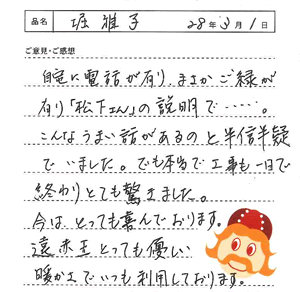 品名 堀 雅子 28年3月1日
ご意見・ご感想
自宅に電話が有り、まさかご縁が
有り「松下さん」の説明で……。
こんなうまい話があるのと半信半疑
でいました。でも本当で工事も一日で
終わりとても驚きました。
今は、とっても喜んでおります。
遠赤王とっても優しい
暖かさでいつも利用しております。